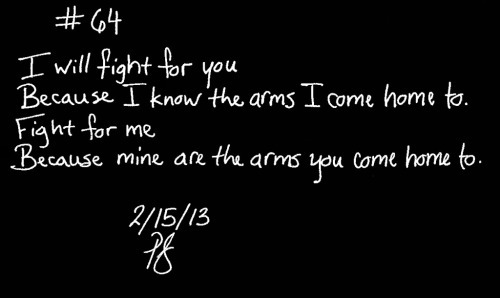 #64
I will fight for you
Because I know the arms I come home to.
Fight for me
Because mine are the arms you come home to.
2/15/13